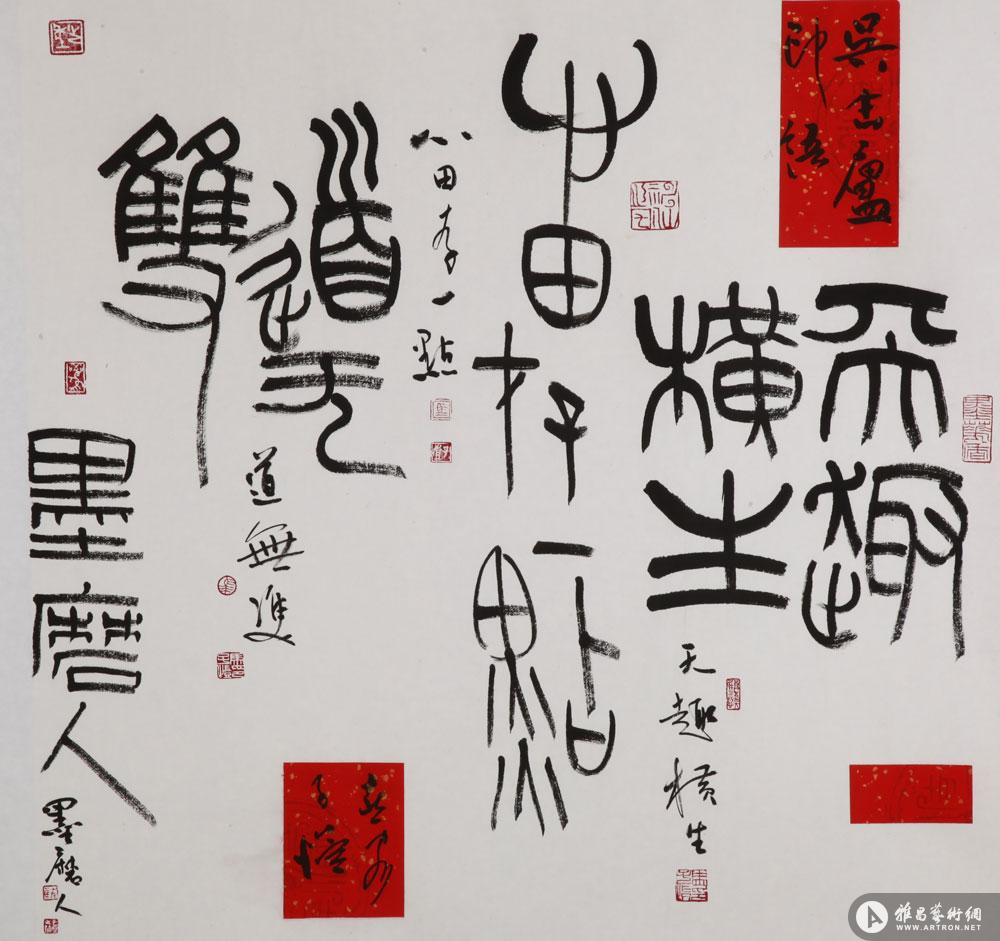 吳缶廬
印語
天趣
橫生
天趣橫生
心田存一點
心田存一點
道无
雙
道無雙
墨磨人
墨磨人
雅昌藝術網
WWW.ARTRON.NET